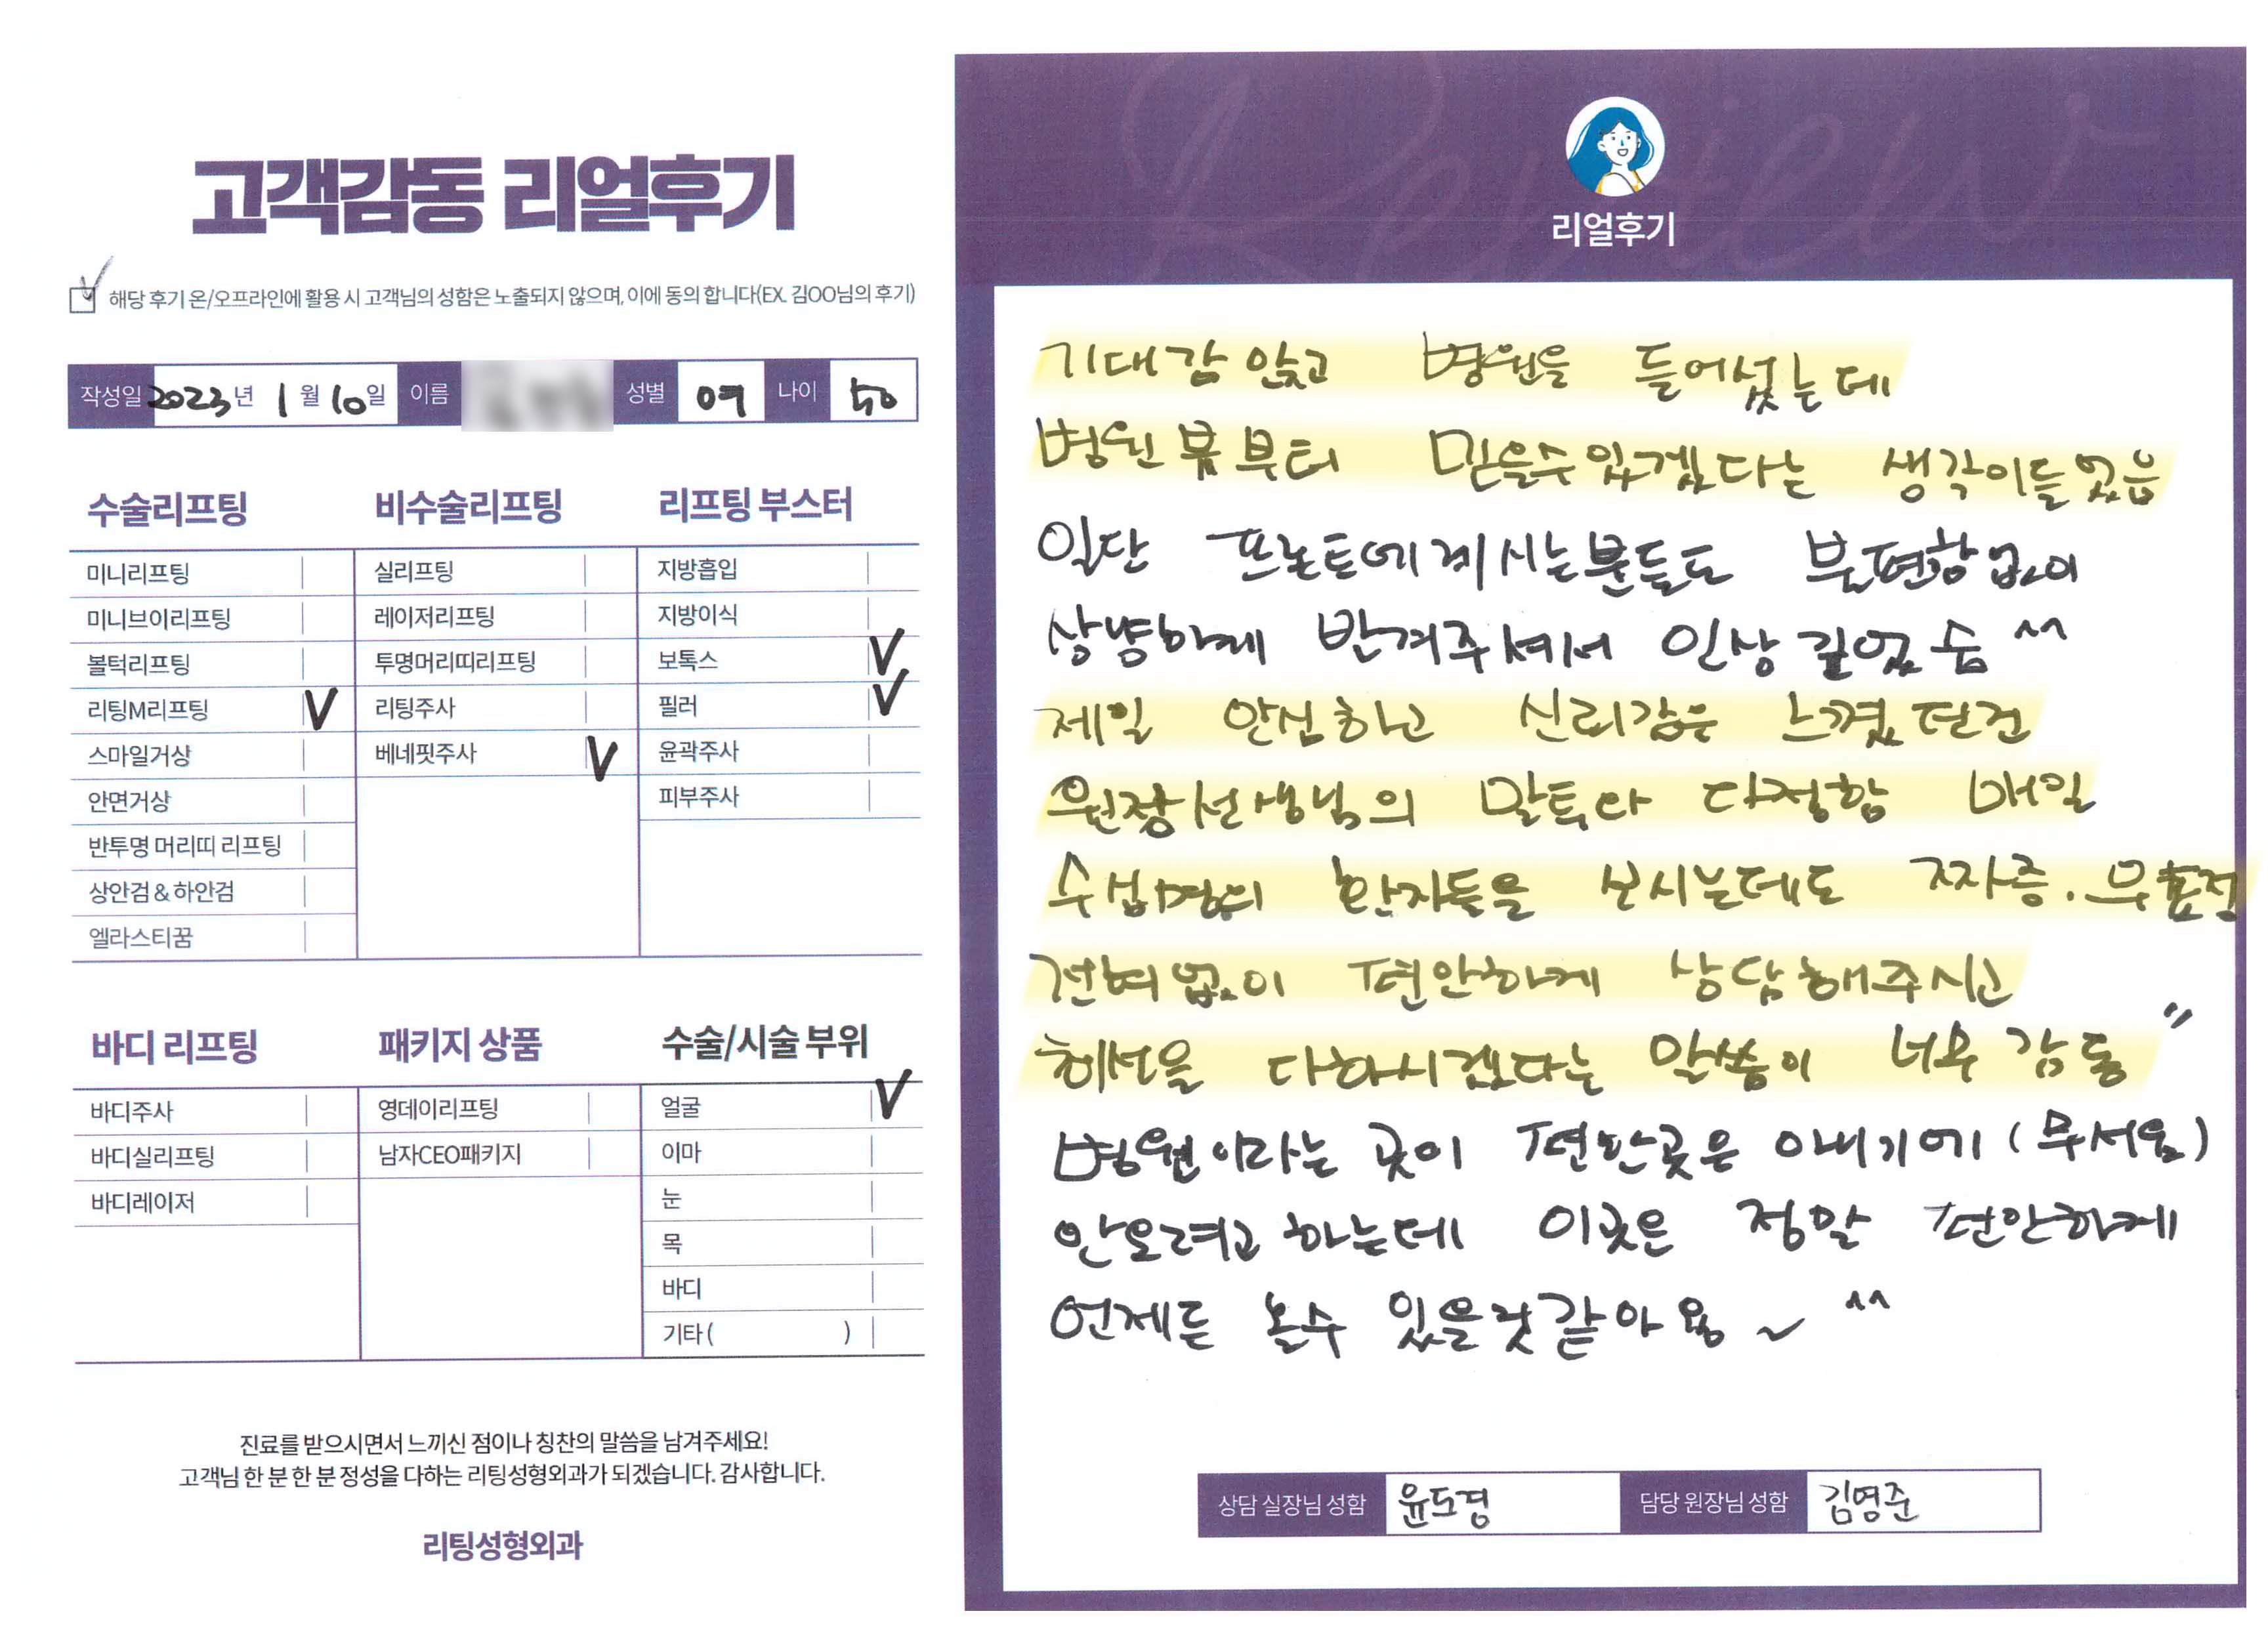 고객감동 리얼후기
해당 후기 온/오프라인에 활용 시 고객님의 성함은 노출되지 않으며, 이에 동의 합니다(EX. 김OO님의 후기)
작성일 2023년 1월 10일 이름 성별 여 나이 50
수술리프팅
미니리프팅
미니브이리프팅
볼턱리프팅
리팅M리프팅 V
스마일거상
안면거상
반투명 머리띠 리프팅
상안검 & 하안검
엘라스티꿈
비수술리프팅
실리프팅
레이저리프팅
투명머리띠리프팅
리팅주사
베네핏주사 V
리프팅 부스터
지방흡입
지방이식
보톡스 V
필러 V
윤곽주사
피부주사
바디 리프팅
바디주사
바디실리프팅
바디레이저
패키지 상품
영데이리프팅
남자CEO패키지
수술/시술 부위
얼굴 V
이마
눈
목
바디
기타 ( )
진료를 받으시면서 느끼신 점이나 칭찬의 말씀을 남겨주세요!
고객님 한 분 한 분 정성을 다하는 리팅성형외과가 되겠습니다. 감사합니다.
리팅성형외과
Review
리얼후기
기대감 않고 병원을 들어섰는데
병원 뷰부터 믿을수있겠다는 생각이들었음
일단 프론트에계시는분들도 불편함없이
상냥하게 반겨주셔서 인상깊었숨 ^^
제일 안심하고 신뢰감은 느꼈던건
원장선생님의 말투와 다정함 매일
수십명의 환자들을 보시는데도 짜증. 무표정
전혀없이 편안하게 상담해주시고
최선을 다하시겠다는 말씀이 너무 감동"
병원이라는 곳이 편한곳은 아니기에 (무서움)
안오려고하는데 이곳은 정말 편안하게
언제든 올수 있을것같아용~ ^^
상담 실장님 성함 윤도경 담당 원장님 성함 김영준